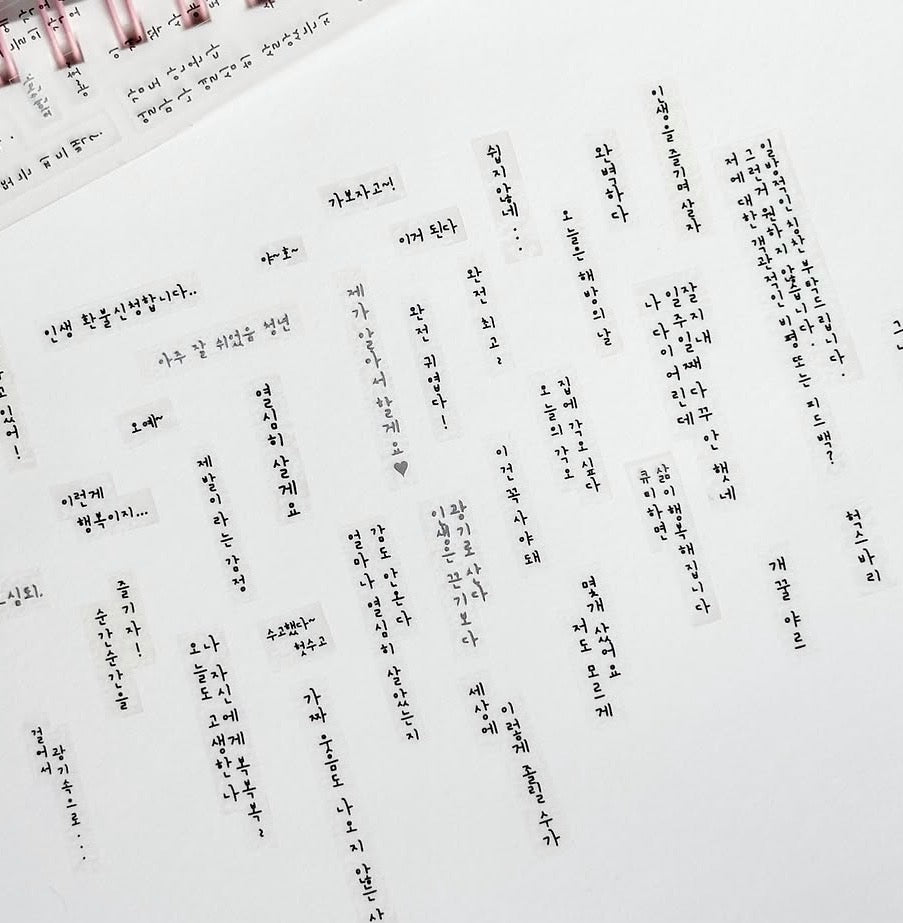 가보자고~!
이거 된다
야~호~
인생 환불신청합니다..
아주 잘 쉬었음 청년
오예~
이런게
행복이지...
쉽지않네...
완벽하다
인생을 즐기며 살자
일방적인 칭찬 부탁드립니다.
그런거 원하지 않습니다.
저에 대한 객관적인 비평 또는 피드백?
오늘은 해방의날
완전 최고~
완전 귀엽다!
제가 알아서 할게요♥
열심히 살게요
제발이라는 감정
잘 지내
일주일째 다꾸 안 했네
나 다이어린데
집에 각오 싶다
오늘의 각오
이건 꼭 사야 돼
삶이 행복해집니다
큐미하면
광기로 산다
이 생은 끈기보다
감도 안온다
얼마나 열심히 살았는지
헉스바리
개꿀 야르
몇개 샀어요
저도 모르게
수고했다~
헛수고
즐기자!
순간순간을
나 자신에게 복복복~
오늘도 고생한 나
가짜 웃음도 나오지 않는 사
이렇게 졸릴 수가
세상에
광기속으로...
걸어서
고 있어!